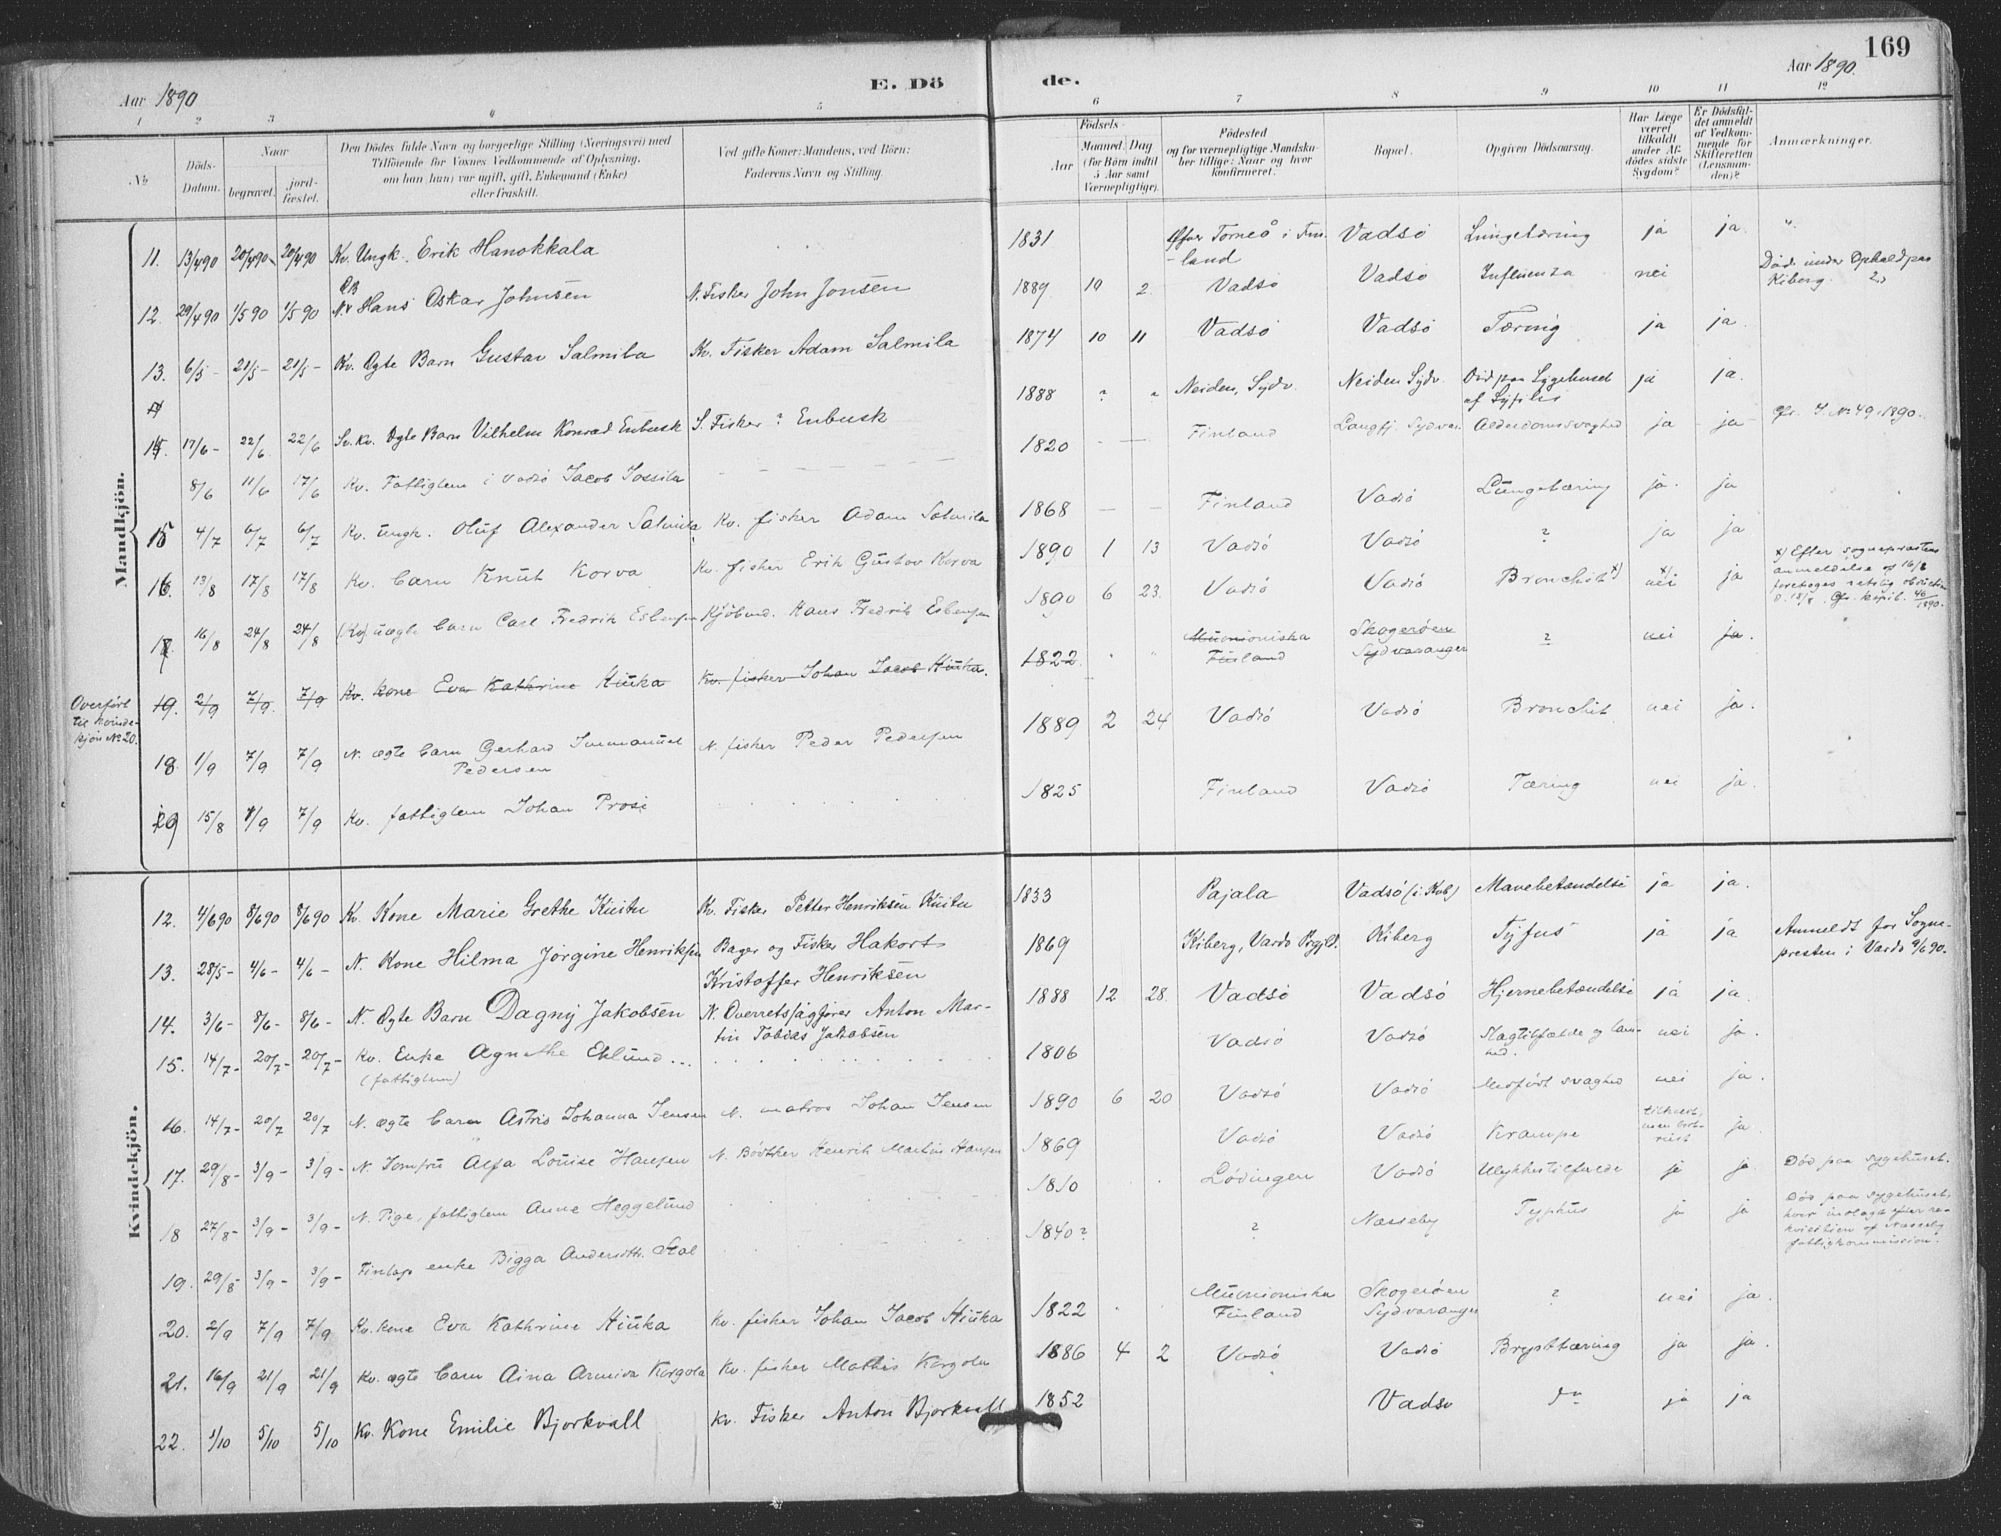 169
Aar 1890
E. Dö de.
Aar 1890.
1 2 3 4 5 6 7 8 9 10 11 12
No
Döds-
Datum.
Naar
begravet.
jord-
fæstet.
Den Dödes fulde Navn og borgerlige Stilling (Næringsvei) med
Tilföiende for Voxnes Vedkommende af Oplysning,
om han (hun) var ugift, gift, Enkemand (Enke)
eller fraskilt.
Ved gifte Koner: Mandens, ved Börn:
Faderens Navn og Stilling.
Födsels-
Aar
Maaned. Dag
(for Börn indtil
5 Aar samt
Værnepligtige).
Födested
og for værnepligtige Mandska-
ber tillige: Naar og hvor
konfirmeret.
Bopæl.
Opgiven Dödsaarsag.
Har Læge
været
tilkaldt
under Af-
dödes sidste
Sygdom?
Er Dödsfal-
det anmeldt
af Vedkom-
mende for
Skifteretten
(Lensman-
den)?
Anmærkninger.
Mandkjön.
11. 13/4 90 20/4 90 20/4 90 Kv. Ungk. Erik Hanokkala 1831 Öfver Torneå i Fin-
land Vadsö Lungetæring ja ja. "
12. 29/4 90 1/5 90 1/5 90 N. Hans Oskar Johnsen N. Fisker John Jonsen 1889 10 2 Vadsö Vadsö Influenza nei Död under Ophold paa
Kiberg.
13. 6/5 - 21/5 - 21/5 - Kv. Ægte Barn Gustav Salmila Kv. Fisker Adam Salmila 1874 10 11 Vadsö Vadsö Tæring ja ja.
14. 17/6 - 22/6 22/6 Sv. kv. Ægte Barn Vilhelm Konrad Enbusk S. Fisker ? Enbusk 1888 ? " Neiden, Sydv. Neiden Sydv. Död paa Sygehuset
af Syfilis ja ja.
8/6 11/6 17/6 Kv. Fattiglem i Vadsö Jacob Jossila 1820 — — Finland Langfj. Sydvar. Alderdomssvaghed ja ja Cfr. J. No 49, 1890.
15 4/7 6/7 6/7 Kv. ungk. Oluf Alexander Salmila Kv. fisker Adam Salmila 1868 — — Finland Vadsö Lungetæring ja. ja
16. 13/8 17/8 17/8 Kv. barn Knut Korva Kv. fisker Erik Gustav Korva 1890 1 13 Vadsö Vadsö ? ja ja
17. 16/8 24/8 24/8 (Kv) uægte barn Carl Fredrik Esbensen Kjöbmd. Hans Fredrik Esbensen 1890 6 23. Vadsö Vadsö Bronchit x) x) nei ja x) Efter sogneprestens
anmeldelse af 16/8
foretoges retslig obduction
d. 18/8. Cfr. kopib. 46/1890.
Overfört
til kvinde-
kjön No 20.
19. 2/9 7/9. 7/9 Kv. kone Eva Kathrine Hiuka Kv. fisker Johan Jacob Hiuka. 1822 Muonioniska
Finland Skogeröen
Sydvaranger ? nei ja.
18 1/9 7/9 7/9 N. ægte barn Gerhard Immanuel
Pedersen N. fisker Peder Pedersen 1889 2 24 Vadsö Vadsö Bronchit nei ja.
19 15/8 7/9 7/9 Kv. fattiglem Johan Prosi 1825 Finland Vadsö Tæring nei ja.
Kvindekjön.
12. 4/6 90 8/6 90 8/6 90 Kv. Kone Marie Grethe Kuitu Kv. Fisker Petter Henriksen Kuitu 1833 Pajala Vadsö (i Kvb) Mavebetændelse ja ja.
13. 28/5 - 4/6 - 4/6 - N. Kone Hilma Jörgine Henriksen Bager og Fisker Hakort
Kristoffer Henriksen 1869 Kiberg, Vardö Prgjld. Kiberg Tyfus ja ja Anmeldt for Sogne-
presten i Vardö 9/6 90.
14. 3/6 - 8/6 - 8/6 - N. Ægte Barn Dagny Jakobsen N. Overretssagförer Anton Mar-
tin Tobias Jakobsen 1888 12 28. Vadsö Vadsö Hjernebetændelse ja ja.
15. 14/7 - 20/7 - 20/7 - Kv. Enke Agnethe Eklund
(fattiglem) 1806 Vadsö Vadsö Slagtilfælde og lam-
hed. nei ja.
16. 14/7 - 20/7 20/7 N. ægte barn Astrid Johanna Jensen N. matros Johan Jensen 1890 6 20 Vadsö Vadsö Medfödt svaghed nei ja.
17. 29/8 - 3/9 - 3/9 - N. Jomfru Alfa Louise Hansen N. Bödtker Henrik Martin Hansen 1869 Vadsö Vadsö Krampe tilkaldt,
men bort-
reist ja.
18 27/8 - 3/9 - 3/9 - N. Pige, fattiglem Anne Heggelund 1810 Lödingen Vadsö Ulykkestilfælde ja ja. Död paa sygehuset.
19. 29/8 - 3/9 - 3/9 - Finlap enke Bigga Andersdtr. Skal 1840? ? Næsseby Typhus ja ja Död paa sygehuset,
hvor indlagt efter re-
kvisition af Næsseby
fattigkommission.
20. 2/9 7/9 7/9 Kv. kone Eva Kathrine Hiuka Kv. fisker Johan Jacob Hiuka 1822 Muonioniska
Finland Skogeröen
Sydvaranger ? nei ja.
21. 16/9 21/9 21/9 Kv. ægte barn Aina Armida Korgola Kv. fisker Mathis Korgola 1886 4 2 Vadsö Vadsö Brysttæring ja ja.
22. 1/10 5/10 5/10 Kv. Kone Emilie Bjorkvall Kv. Fisker Anton Bjorkvall 1852 Vadsö do ja ja